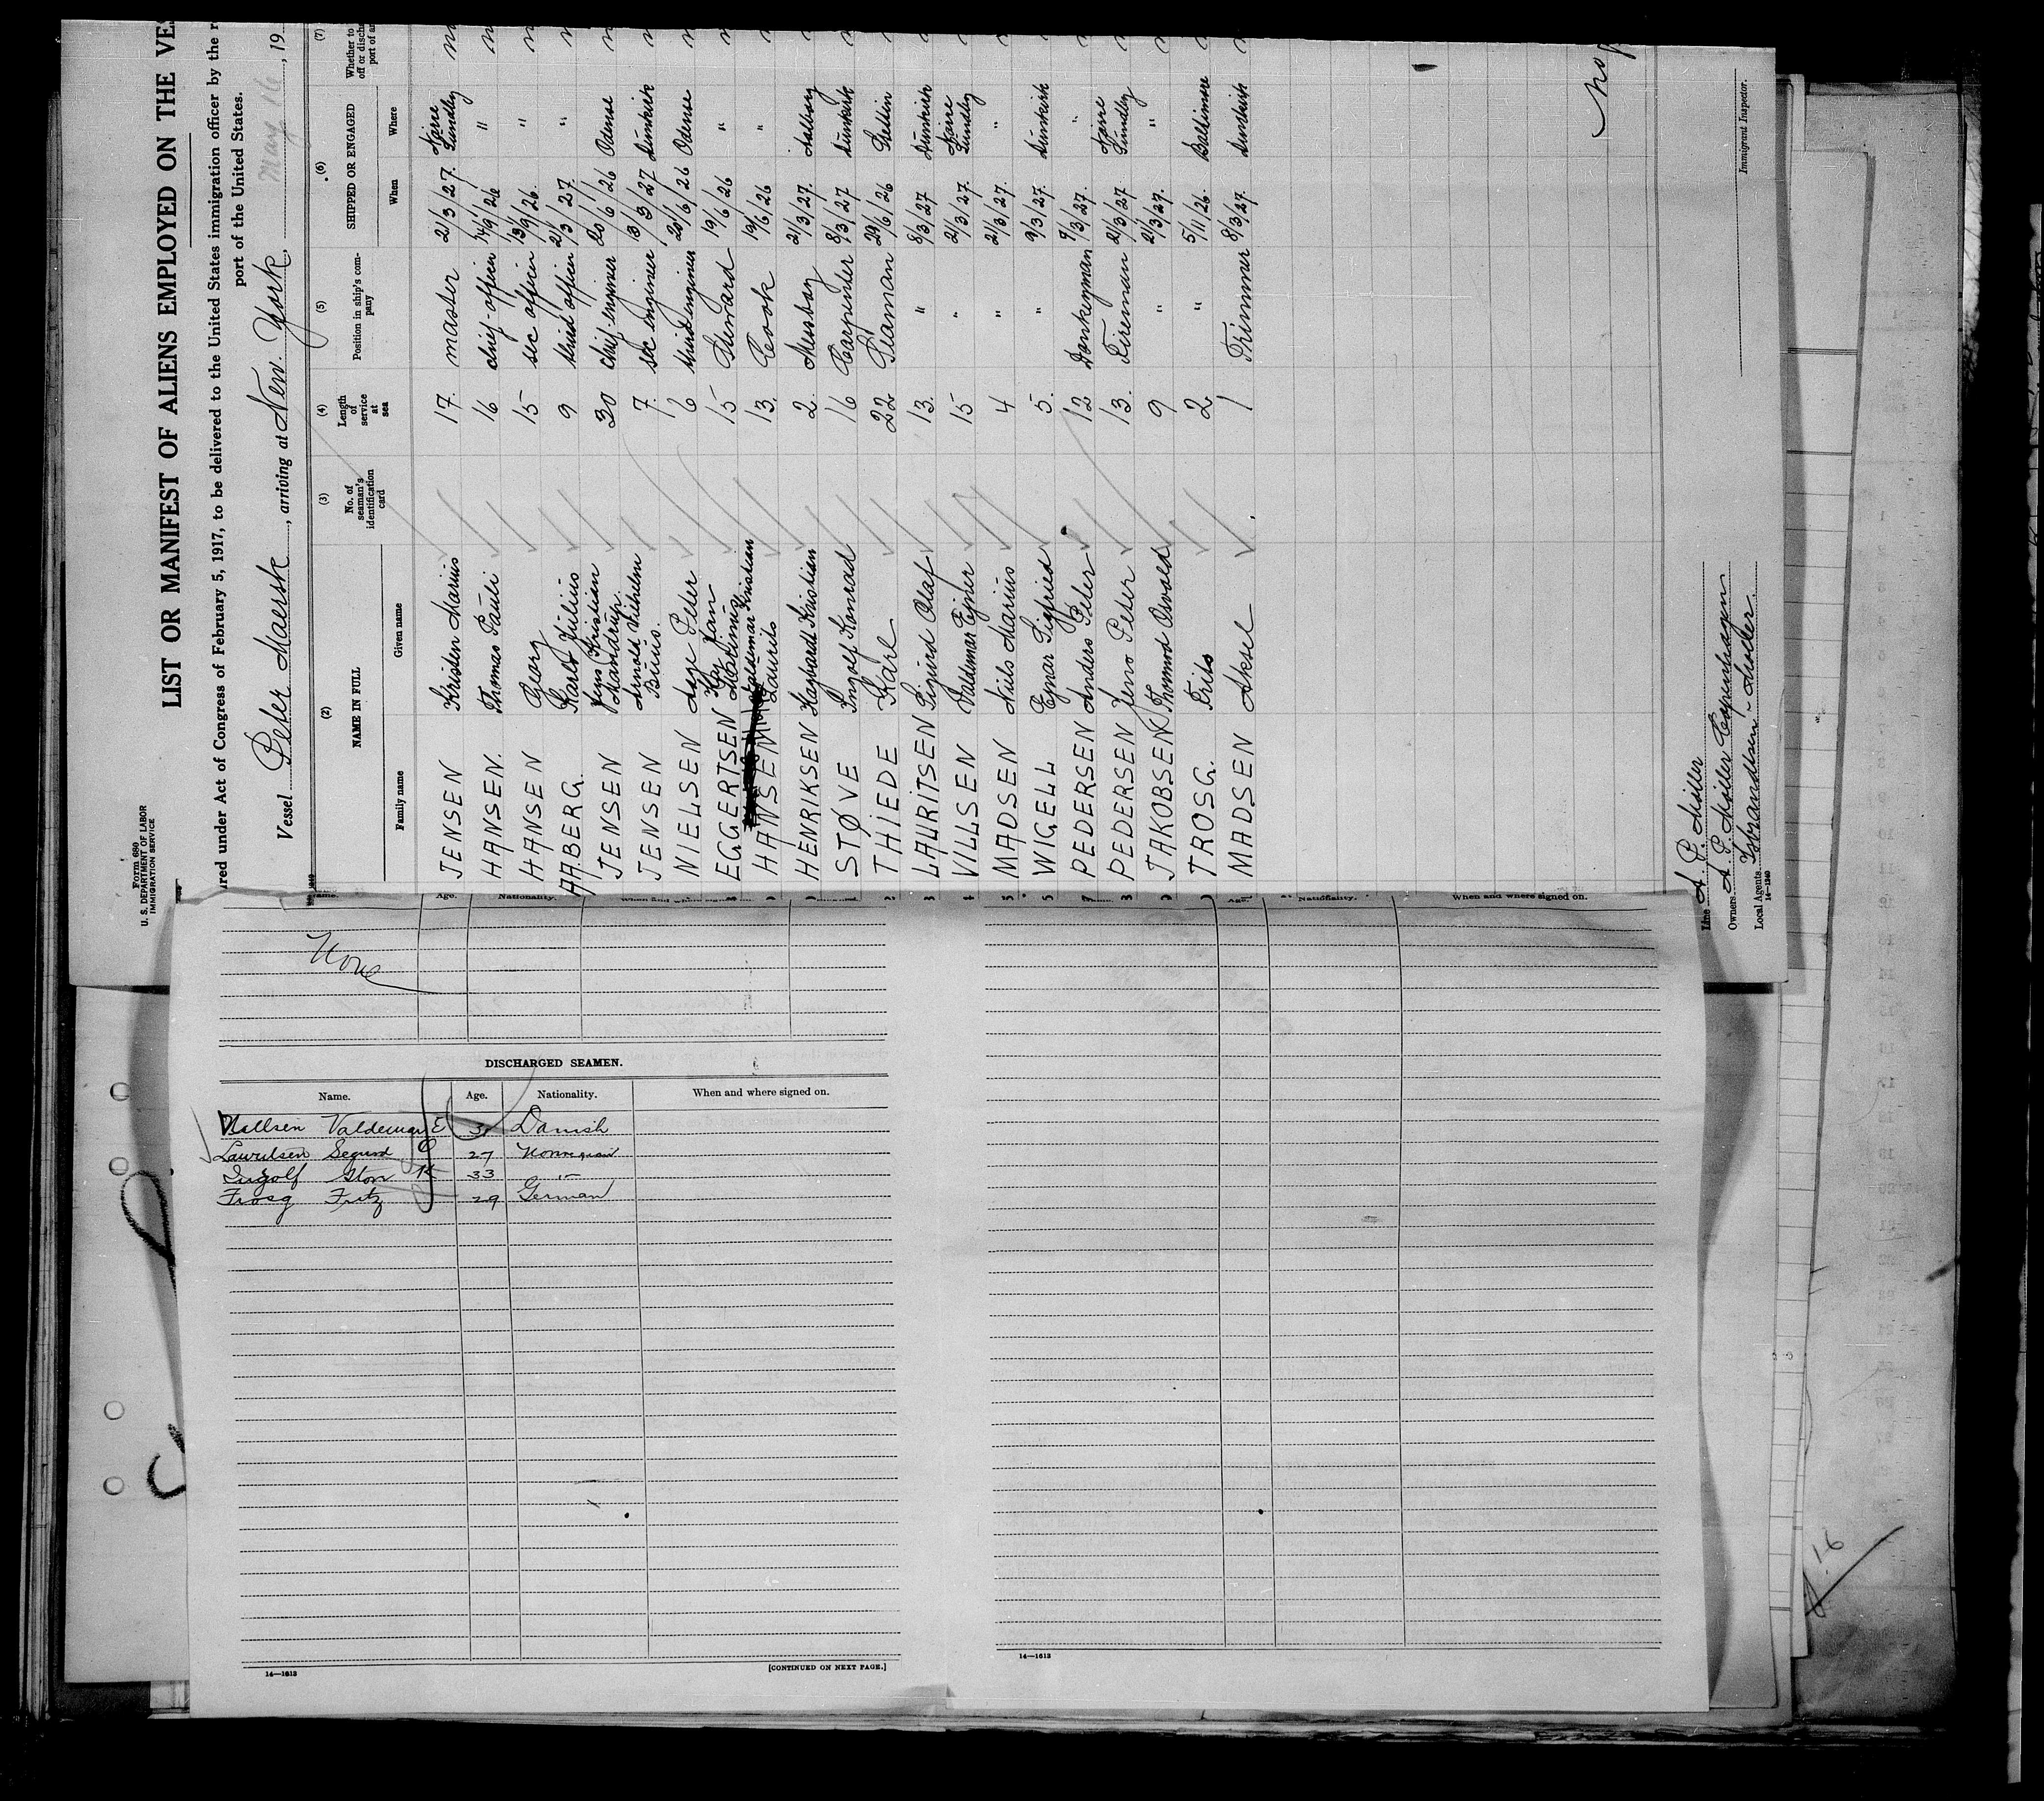 Form 680
U. S. DEPARTMENT OF LABOR
IMMIGRATION SERVICE
LIST OR MANIFEST OF ALIENS EMPLOYED ON THE VES
ured under Act of Congress of February 5, 1917, to be delivered to the United States immigration officer by the r
port of the United States.
Vessel Peter Maersk, arriving at New York, May 16, 19
(2) (3) (4) (5) (6) (7)
NAME IN FULL No. of seaman's identification card Length of service at sea Position in ship's company SHIPPED OR ENGAGED Whether to
off or discha
port of ar
Family name Given name When Where
JENSEN Kristen Marius 17 master 21/3/27. Nørre Sundby
HANSEN. Thomas Pauli 16 chief-officer 14/9/26 "
HANSEN Georg 15 sec officer 13/9/26. "
AABERG. Karlo Julius 9 third officer 21/3/27. "
JENSEN Jens Kristian Mandrup. 30 chief-enginier 20/6/26 Odense
JENSEN Arnold Vilhelm Buus. 7. sec enginier 13/3/27 Dunkirk
NIELSEN Aage Peter 6 third enginier 20/6/26 Odense
EGGERTSEN Martinus 15 Steward 19/6/26 "
HANSEN Valdemar Kristian Laurits 13. Cook 19/6/26 "
HENRIKSEN Hagbardt Kristian 2. Messboy 21/3/27. Aalborg
STØVE Ingolf Konrad 16 Carpenter 8/3/27 Dunkirk
THIEDE Karl 22 Seaman 29/6/26 Stettin
LAURITSEN Sigurd Olaf 13. " 8/3/27 Dunkirk
VILLSEN Valdemar Ejner 15 " 21/3/27. Nørre Sundby
MADSEN Niels Marius 4 " 21/3/27. "
WIGELL Ejnar Sigfried 5. " 9/3/27. Dunkirk
PEDERSEN Anders Peter 12 Donkeyman 9/3/27. "
PEDERSEN Jens Peter 13. Fireman 21/3/27. Nørre Sundby
JAKOBSEN Thormod Osvald 9 " 21/3/27. "
TROSG. Frits 2 " 5/11/26. Baltimore
MADSEN Aksel 1 Trimmer 8/3/27. Dunkirk
Line A. P. Møller
Owners A P. Møller Copenhagen
Local Agents Isbrandtsen-Moller.
14—1240
Immigrant Inspector.
Age. Nationality. When and where signed on.
None
DISCHARGED SEAMEN.
Name. Age. Nationality. When and where signed on.
Villsen Valdemar E 31 Danish
Lauritsen Segurd O 27 Norwegian
Ingolf Ston K 33 "
Frosg Fritz 29 German
14—1613 [CONTINUED ON NEXT PAGE.]
Age. Nationality. When and where signed on.
14—1613